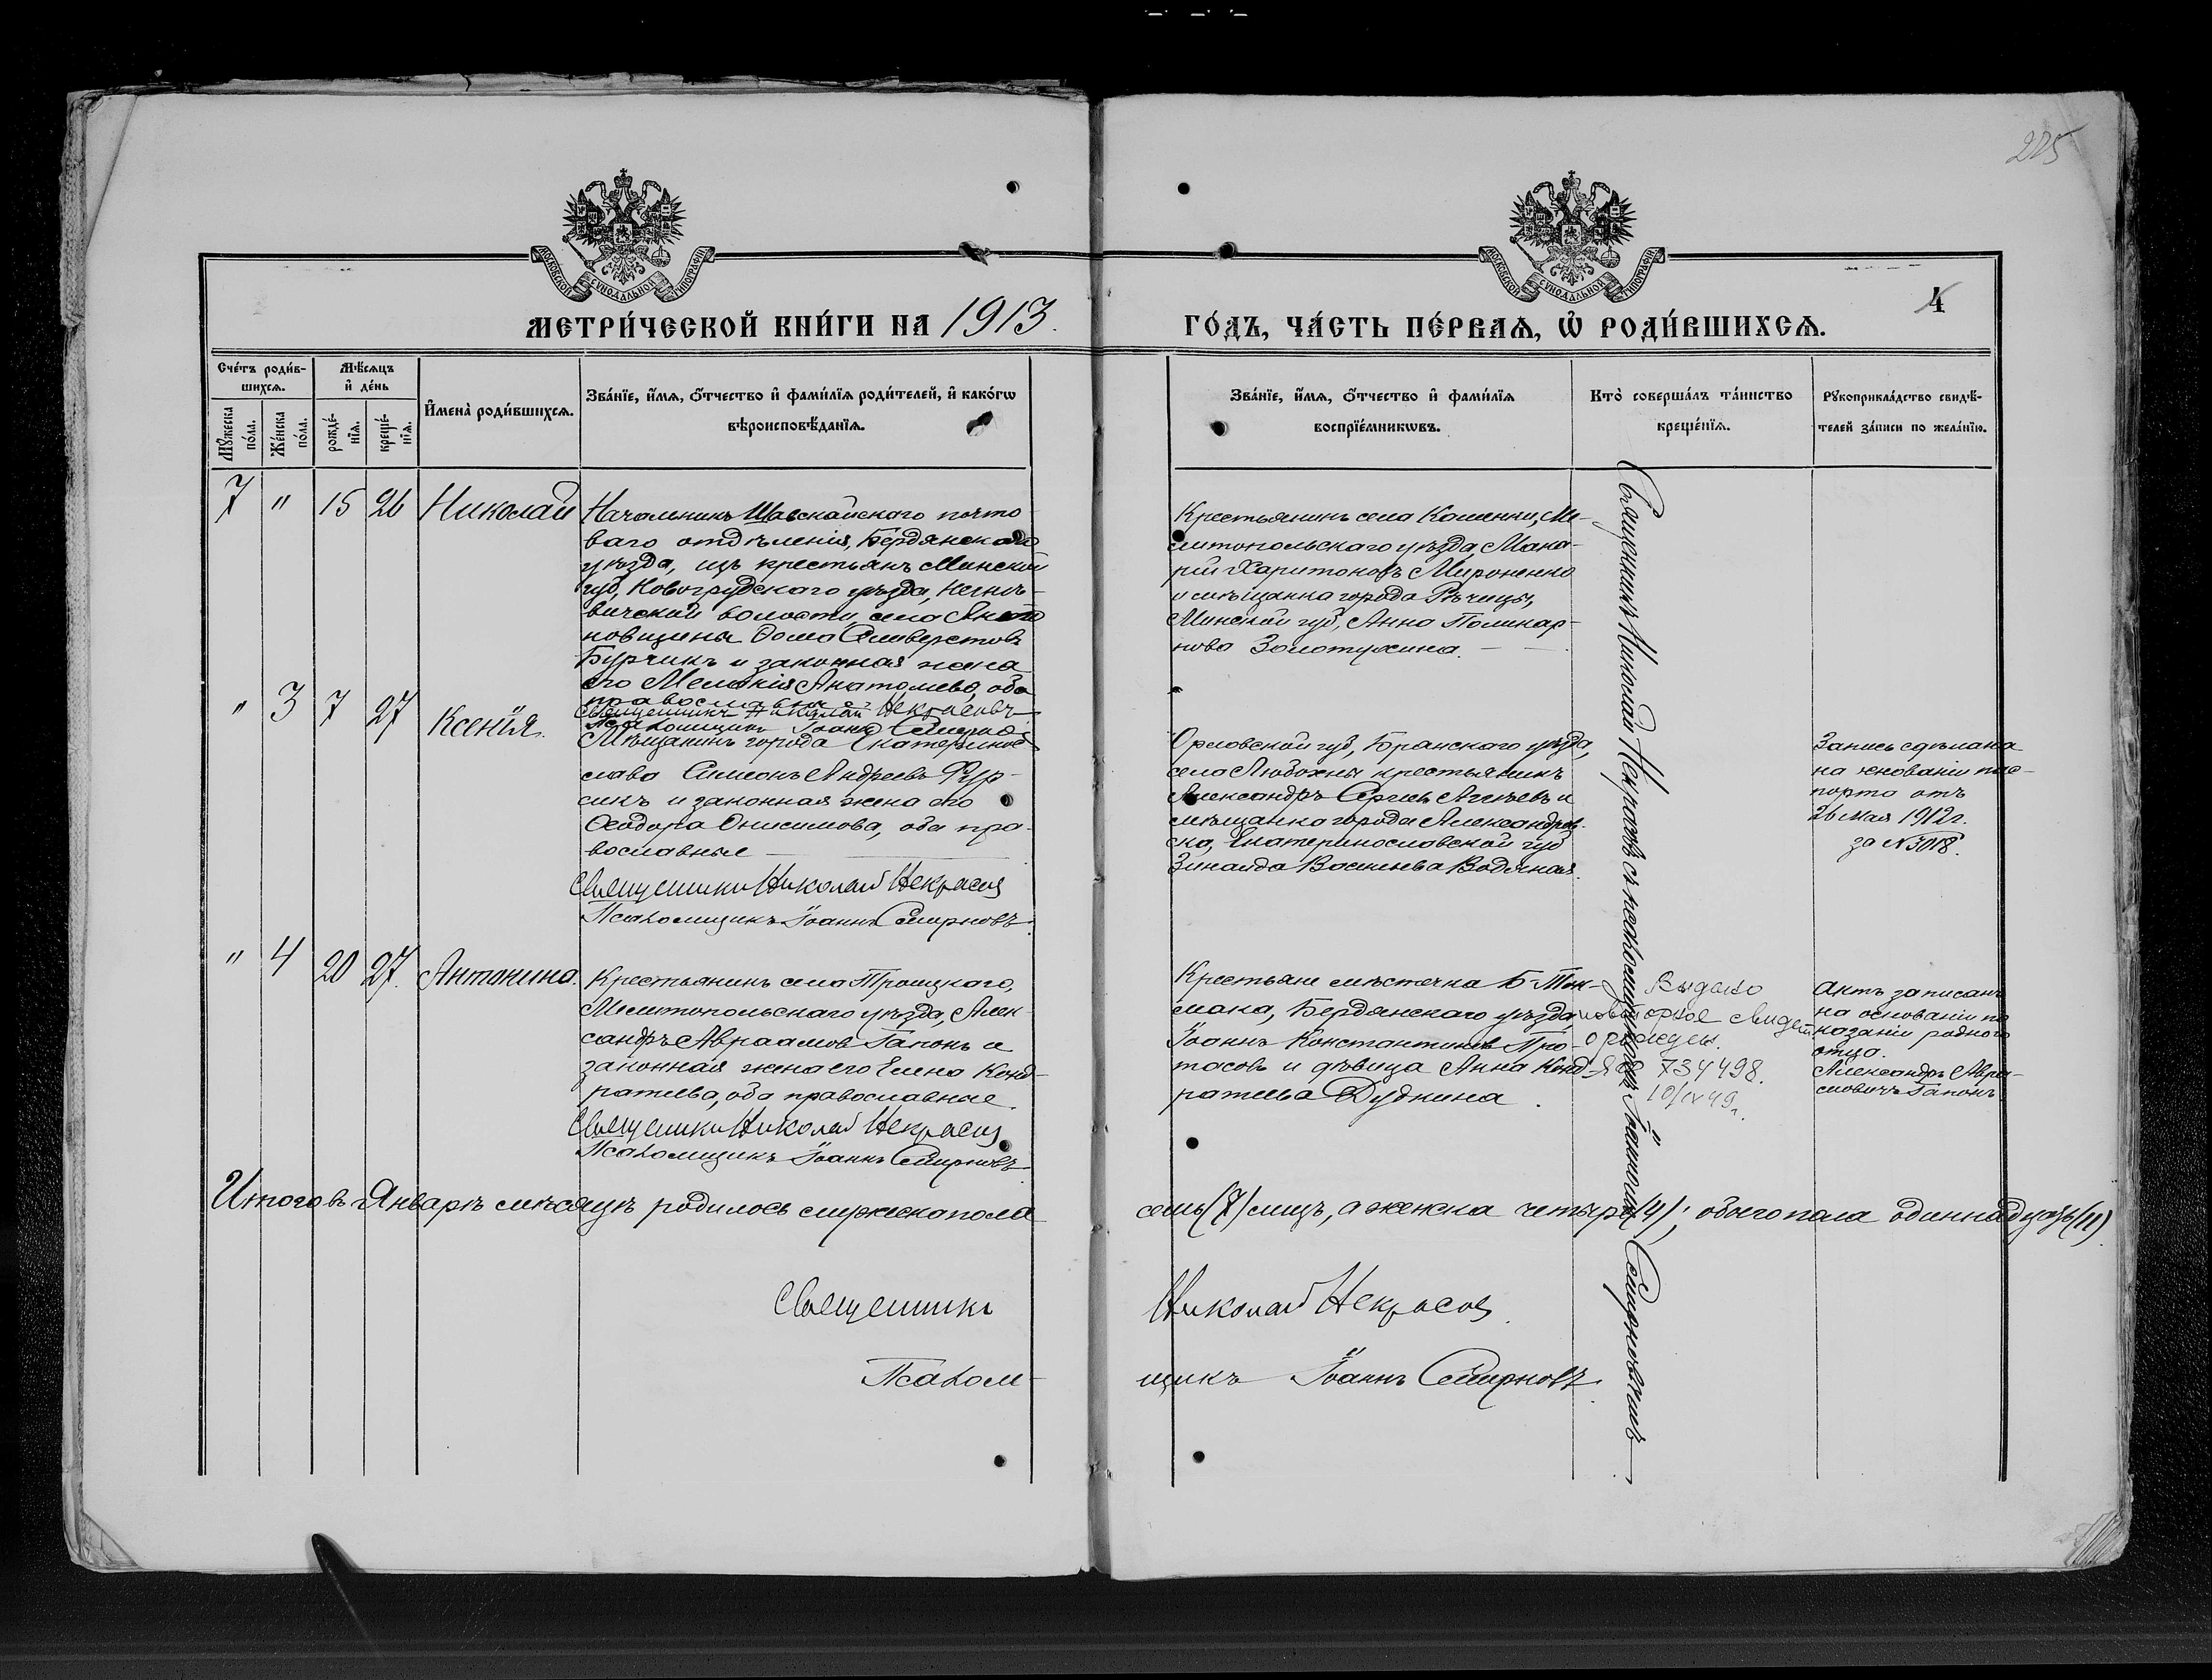 225
МОСКОВСКОЙ СѴНОДАЛЬНОЙ ТИПОГРАФІИ
МОСКОВСКОЙ СѴНОДАЛЬНОЙ ТИПОГРАФІИ
4
МЕТРИ́ЧЕСКОЙ КНИ́ГИ НА 1913.
ГО́ДЪ, ЧА́СТЬ ПЕ́РВАѦ, Ѡ҆ РОДИ́ВШИХСѦ.
Сче́тъ роди́в-
шихсѧ.
Мꙋ́жеска по́ла.
Же́нска по́ла.
Мѣ́сѧцъ
и҆ де́нь
рожде́-
нїѧ.
креще́-
нїѧ.
И҆мена̀ роди́вшихсѧ.
Зва́нїе, и҆́мѧ, ѻ҆́тчество и҆ фами́лїѧ роди́телей, и҆ како́гѡ
вѣроисповѣ́данїѧ.
Зва́нїе, и҆́мѧ, ѻ҆́тчество и҆ фами́лїѧ
воспрїе́мникѡвъ.
Кто̀ соверша́лъ та́инство
креще́нїѧ.
Рꙋкоприкла́дство свидѣ́-
телей за́писи по жела́нїю.
7 " 15 26 Николай
Начальникъ почто-
ваго отдѣленія, Бердянскаго
уѣзда, изъ крестьянъ Минской
губ, Новогрудскаго уѣзда,
вичской волости, села
новщины Сильверстовъ
Бурчикъ и законная жена
его Меланія Анатолиева, оба
православные
Священникъ Николай Некрасовъ
Псаломщикъ Іоаннъ Смирнов
Крестьянинъ села Каменки, Ме-
литопольскаго уѣзда, Мака-
рій Харитоновъ Мироненко
и мѣщанка города Рѣчицы,
Минской губ, Анна Поликар-
пова Золотухина.
" 3 7 27 Ксенія.
Мѣщанинъ города Екатеринос-
лава Симеонъ Андреевъ Фур-
сикъ и законная жена его
Ѳеодора Онисимова, оба пра-
вославные
Священникъ Николай Некрасов
Псаломщикъ Іоаннъ Смирновъ.
Орловской губ, Брянскаго уѣзда,
села Любохны крестьянинъ
Александръ Сергіевъ и
мѣщанка города Александров-
ска, Екатеринославской губ
Зинаида Васильева Водяная.
Запись сдѣлана
на основаніи пас-
порта отъ
26 Мая 1912 г.
за № 3018.
" 4 20 27. Антонина.
Крестьянинъ села Троицкаго,
Мелитопольскаго уѣзда, Алек-
сандръ Авраамов Гапонъ и
законная жена его Елена Конд-
ратиева, оба православные.
Священникъ Николай Некрасов
Псаломщикъ Іоаннъ Смирновъ
Крестьяне мѣстечка Б-Ток-
мака, Бердянскаго уѣзда
Іоаннъ Константинов Про-
тасовъ и дѣвица Анна Конд-
ратиева Дудкина.
Выдано
повторное свидет.
о рожден.
734498.
10/IX 49 г.
Актъ записанъ
на основаніи по-
казаніи роднаго
отца.
Александръ Авра-
мовичъ Гапонъ
Священникъ Николай Некрасовъ съ псаломщикомъ Іоанномъ Смирновымъ
Итого въ Январѣ мѣсяцѣ родилось мужеска пола
семь (7) лицъ, а женска четыре (4); обоего пола одиннадцать (11).
Священникъ
Николай Некрасов
Псалом-
щикъ Іоаннъ Смирновъ.